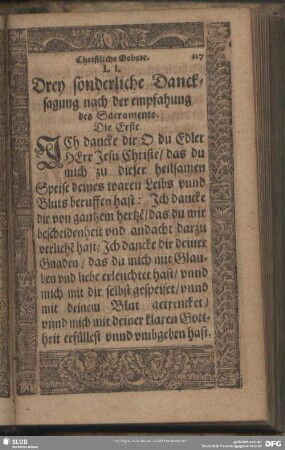 Christliche Gebete. 117
L I.
Drey sonderliche Danck-
sagung nach der empfahung
des Sacraments.
Die Erste.
ICh dancke dir O du Edler
HErr Jesu Christe/ das du
mich zu dieser heilsamen
Speise deines waren Leibs vnnd
Bluts beruffen hast: Ich dancke
dir von gantzem hertzē/ das du mir
bescheidenheit vnd andacht darzu
verliehē hast/ Ich dancke dir deiner
Gnaden/ das du mich mit Glau-
ben vnd liebe erleuchtet hast/ vnnd
mich mit dir selbst gespeiset/ vnnd
mit deinem Blut getrencket/
vnnd mich mit deiner klaren Gott-
heit erfüllest vnnd vmbgeben hast.
SLUB
DFG